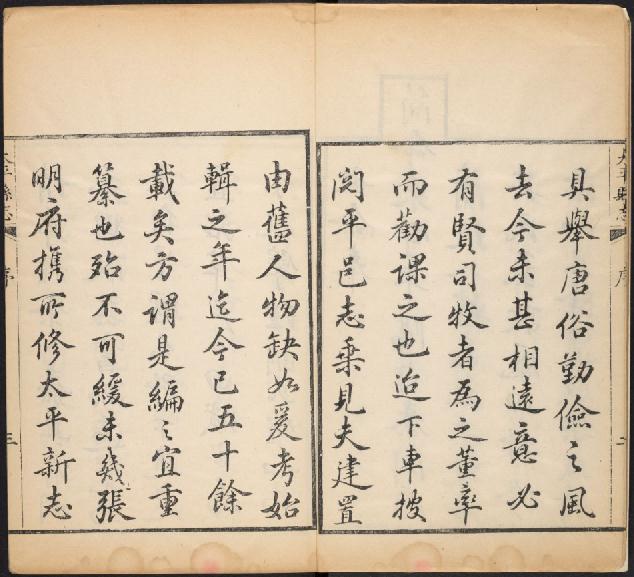 具舉唐俗勤儉之風
去今未甚相遠意必
有賢司牧者為之董率
而勸課之也迨下車披
閱平邑志乘見夫建置
由舊人物缺如爰考始
輯之年迄今已五十餘
載矣方謂是編之宜重
纂也殆不可緩未幾張
明府携所修太平新志
太平縣志
序
二
太平縣志
序
三